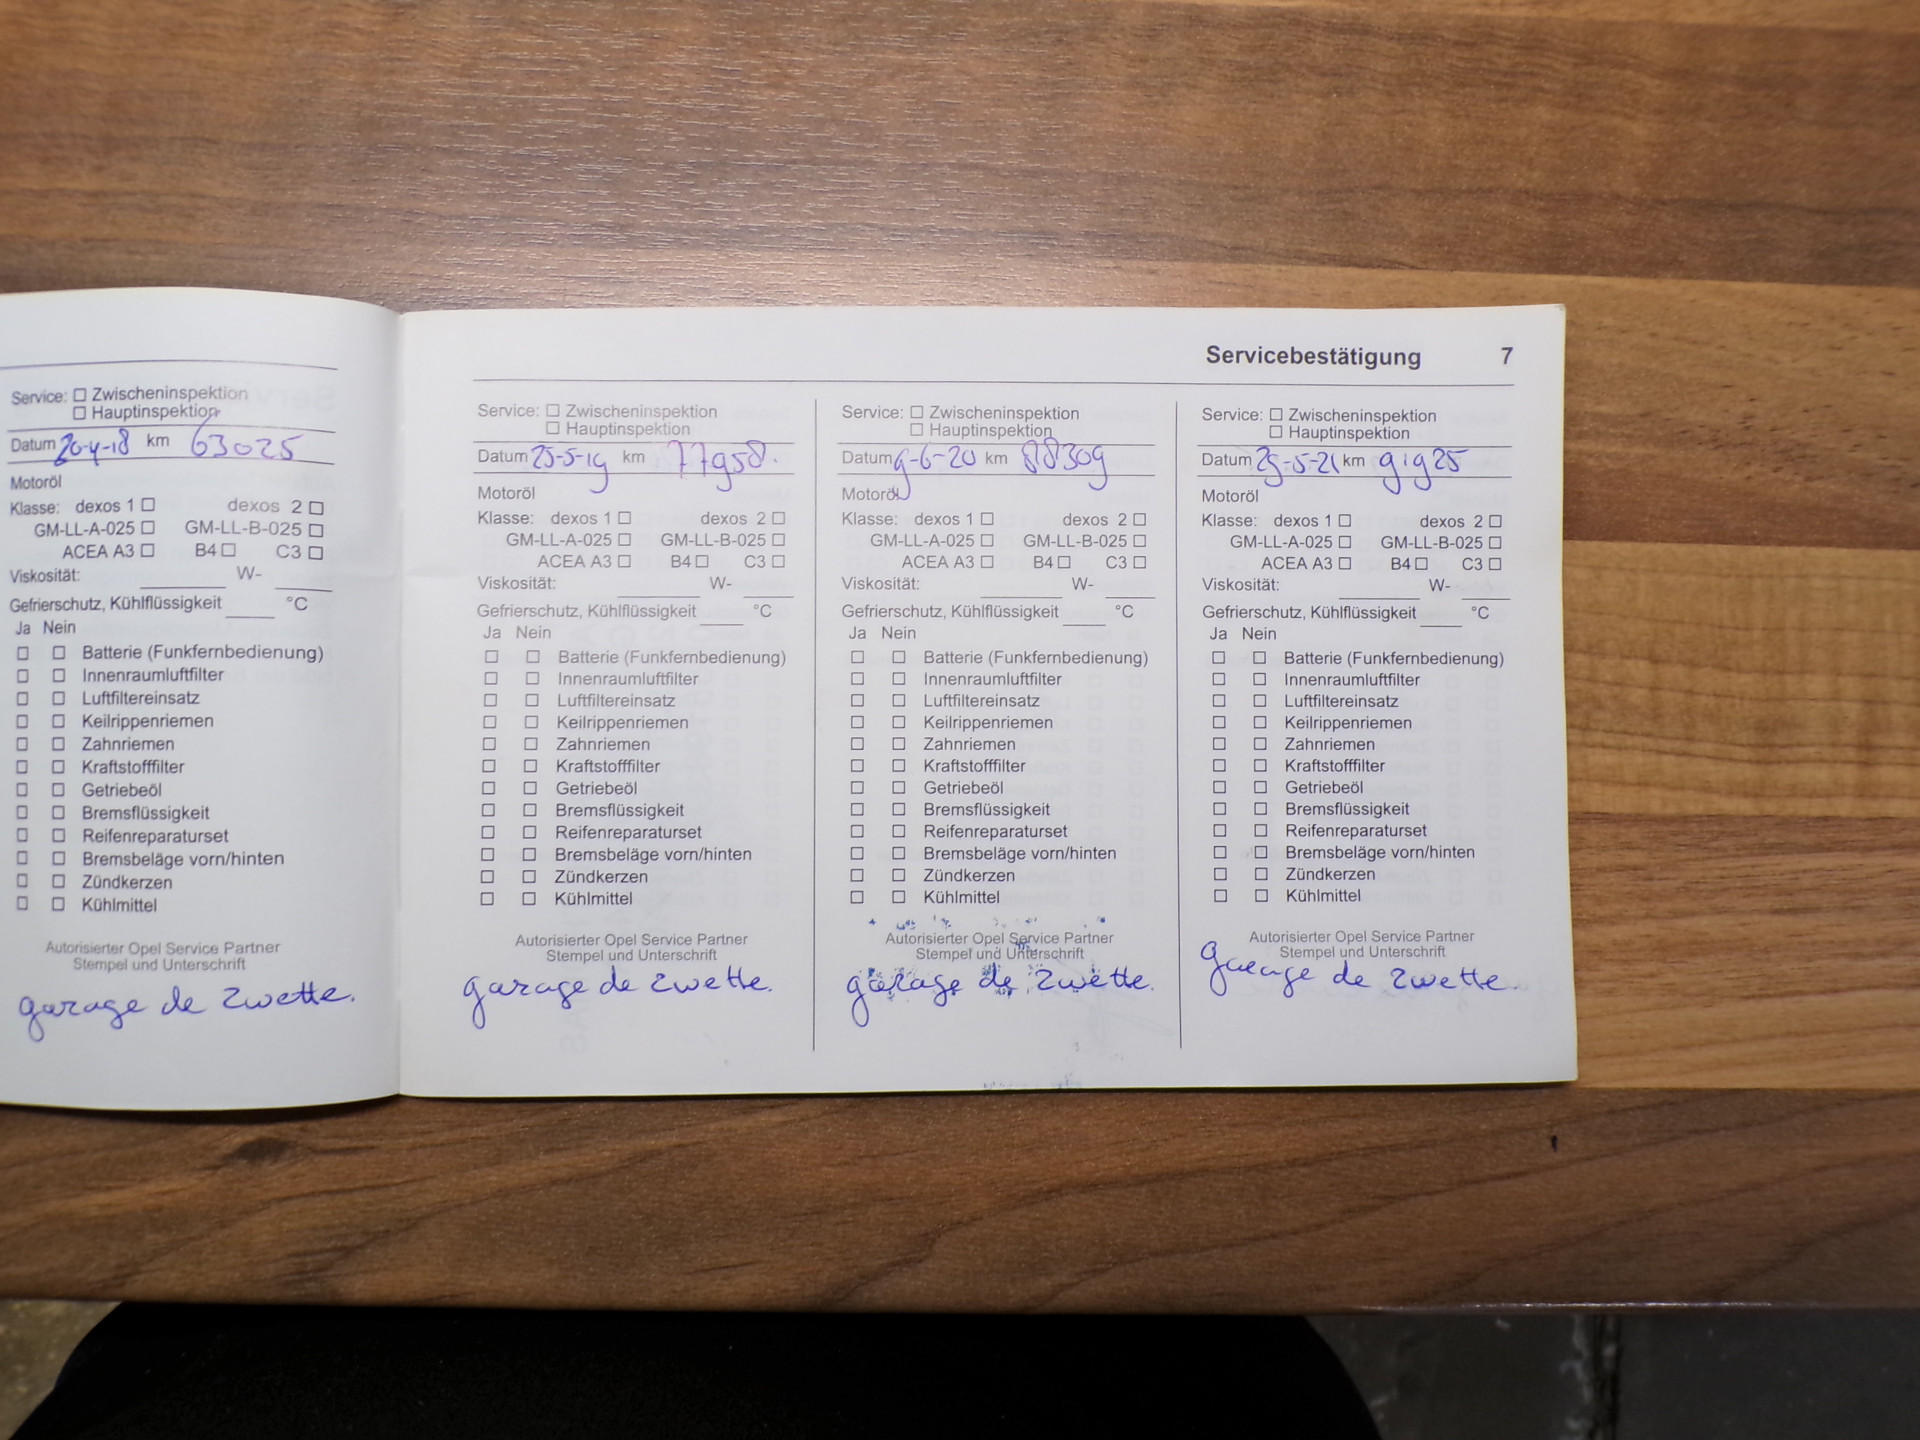 Servicebestätigung 7
Service: Zwischeninspektion
Hauptinspektion
Datum 20-4-18 km 63025
Motoröl
Klasse: dexos 1 dexos 2
GM-LL-A-025 GM-LL-B-025
ACEA A3 B4 C3
Viskosität: W-
Gefrierschutz, Kühlflüssigkeit °C
Ja Nein
Batterie (Funkfernbedienung)
Innenraumluftfilter
Luftfiltereinsatz
Keilrippenriemen
Zahnriemen
Kraftstofffilter
Getriebeöl
Bremsflüssigkeit
Reifenreparaturset
Bremsbeläge vorn/hinten
Zündkerzen
Kühlmittel
Autorisierter Opel Service Partner
Stempel und Unterschrift
garage de Zwette.
Service: Zwischeninspektion
Hauptinspektion
Datum 25-5-19 km 77958.
Motoröl
Klasse: dexos 1 dexos 2
GM-LL-A-025 GM-LL-B-025
ACEA A3 B4 C3
Viskosität: W-
Gefrierschutz, Kühlflüssigkeit °C
Ja Nein
Batterie (Funkfernbedienung)
Innenraumluftfilter
Luftfiltereinsatz
Keilrippenriemen
Zahnriemen
Kraftstofffilter
Getriebeöl
Bremsflüssigkeit
Reifenreparaturset
Bremsbeläge vorn/hinten
Zündkerzen
Kühlmittel
Autorisierter Opel Service Partner
Stempel und Unterschrift
garage de Zwette.
Service: Zwischeninspektion
Hauptinspektion
Datum 9-6-20 km 88309
Motoröl
Klasse: dexos 1 dexos 2
GM-LL-A-025 GM-LL-B-025
ACEA A3 B4 C3
Viskosität: W-
Gefrierschutz, Kühlflüssigkeit °C
Ja Nein
Batterie (Funkfernbedienung)
Innenraumluftfilter
Luftfiltereinsatz
Keilrippenriemen
Zahnriemen
Kraftstofffilter
Getriebeöl
Bremsflüssigkeit
Reifenreparaturset
Bremsbeläge vorn/hinten
Zündkerzen
Kühlmittel
Autorisierter Opel Service Partner
Stempel und Unterschrift
garage de Zwette.
Service: Zwischeninspektion
Hauptinspektion
Datum km 91925
Motoröl
Klasse: dexos 1 dexos 2
GM-LL-A-025 GM-LL-B-025
ACEA A3 B4 C3
Viskosität: W-
Gefrierschutz, Kühlflüssigkeit °C
Ja Nein
Batterie (Funkfernbedienung)
Innenraumluftfilter
Luftfiltereinsatz
Keilrippenriemen
Zahnriemen
Kraftstofffilter
Getriebeöl
Bremsflüssigkeit
Reifenreparaturset
Bremsbeläge vorn/hinten
Zündkerzen
Kühlmittel
Autorisierter Opel Service Partner
Stempel und Unterschrift
garage de Zwette.